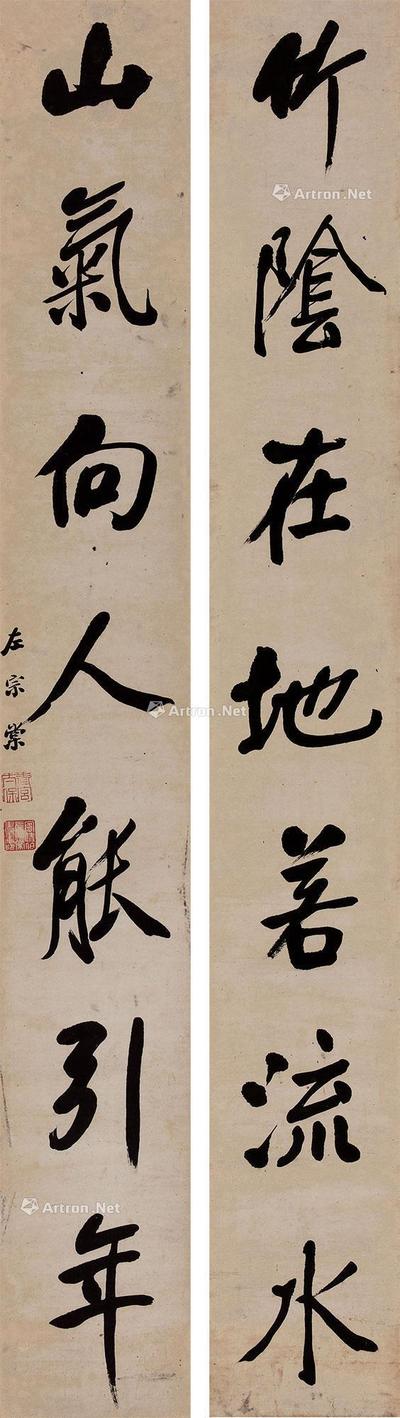 竹陰在地若流水
山氣向人能引年
左宗棠
Artron.Net
Artron.Net
Artron.Net